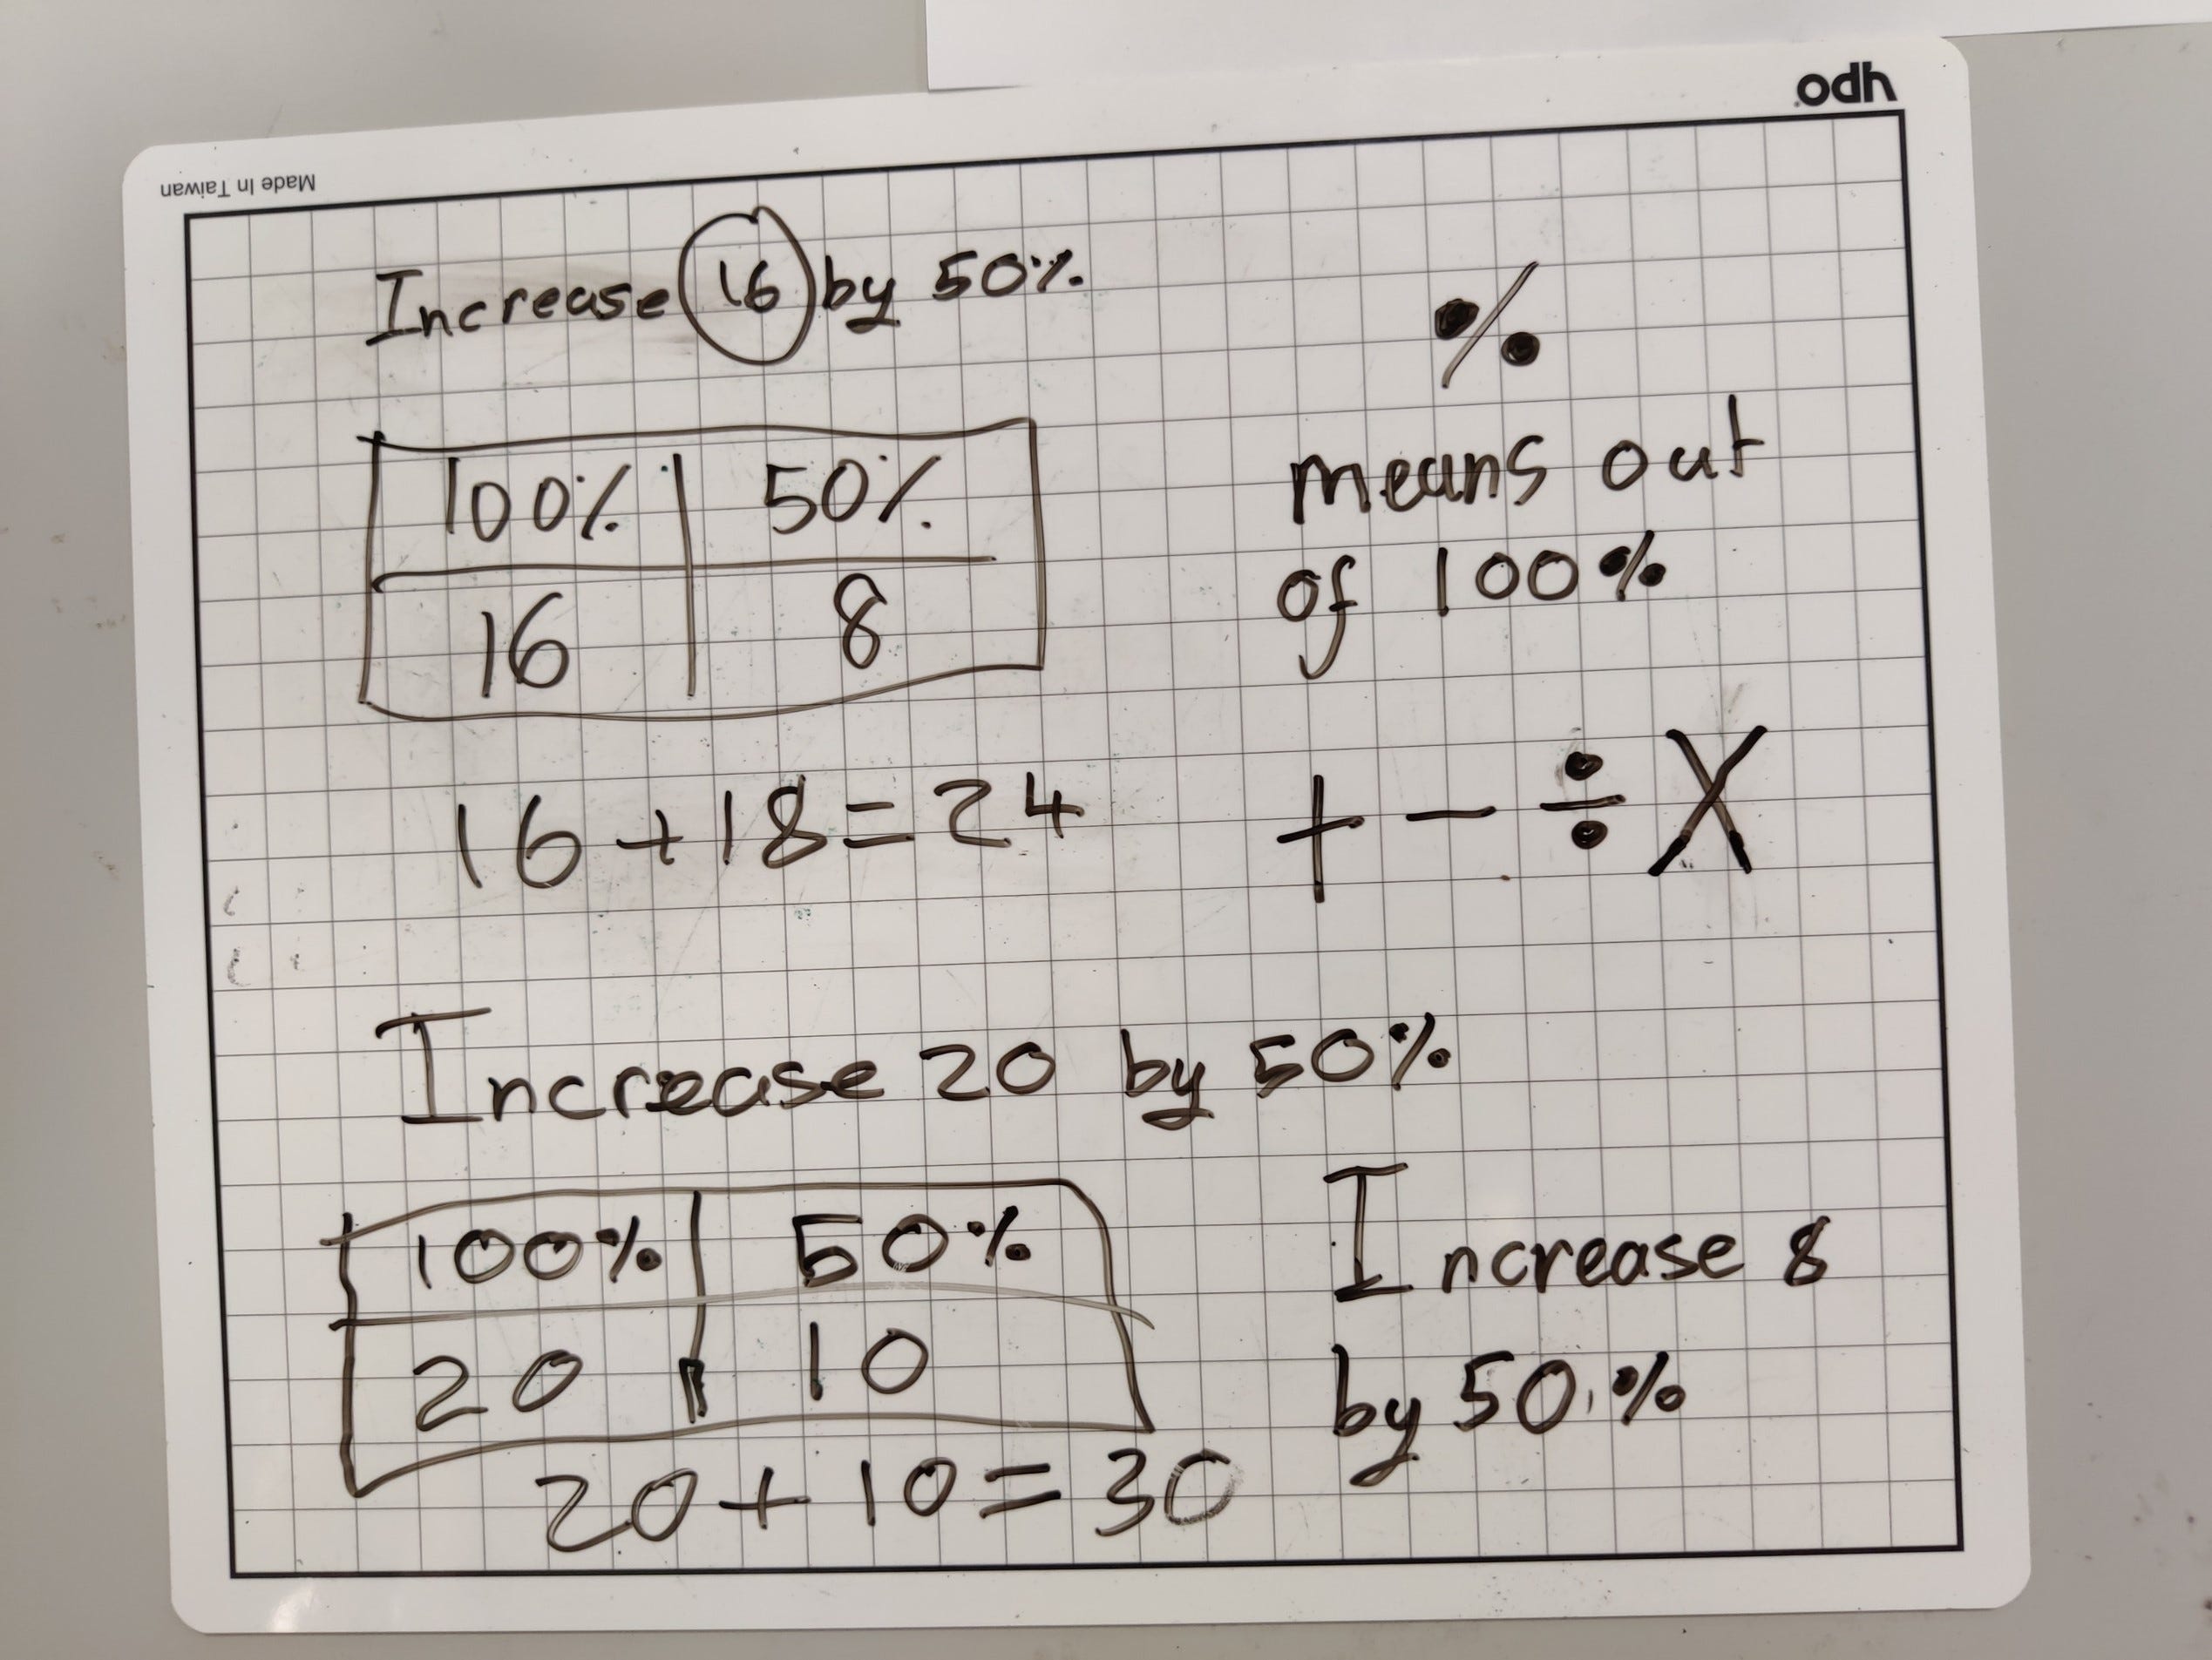 odh
Made In Taiwan
Increase 16 by 50%
100% 50%
16 8
16 + 18 = 24
%
means out
of 100%
+ - ÷ X
Increase 20 by 50%
100% 50%
20 10
20 + 10 = 30
Increase 8
by 50.%